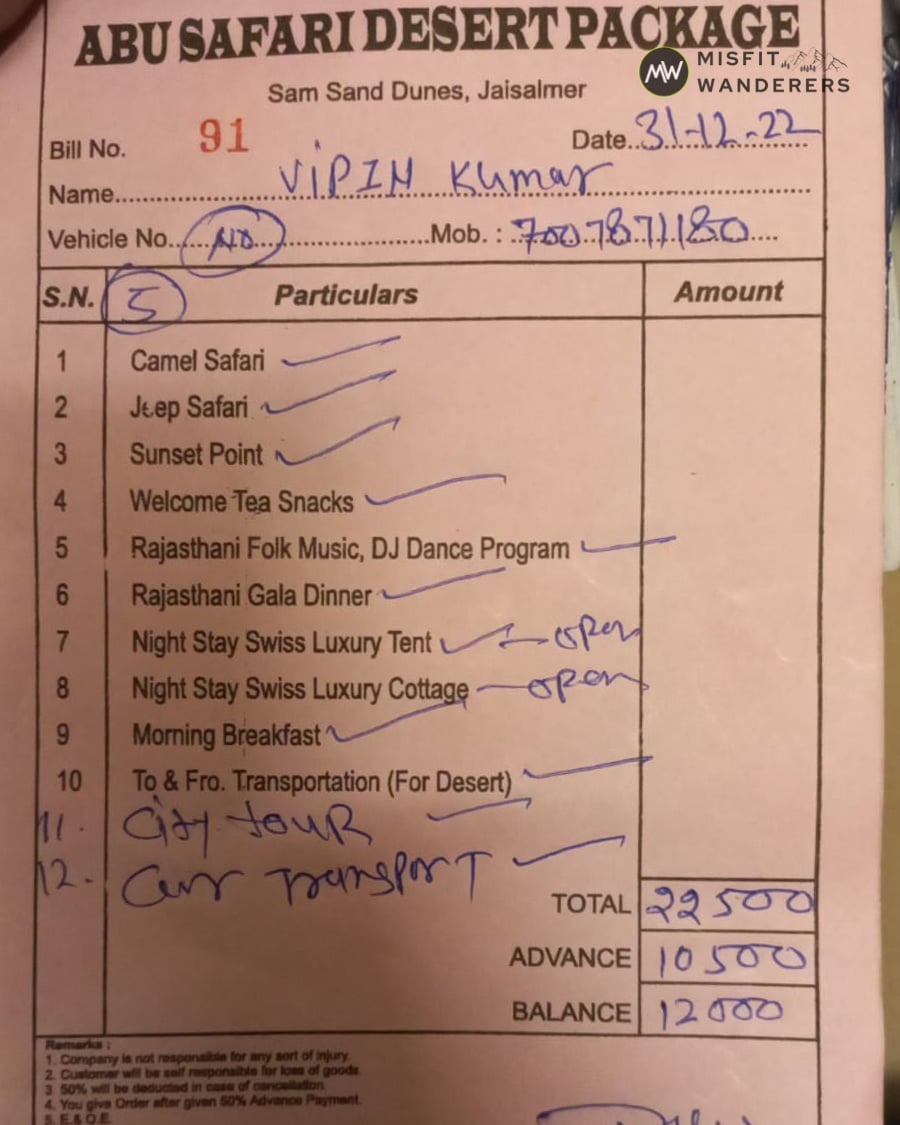 ABU SAFARI DESERT PACKAGE
MW MISFIT WANDERERS
Sam Sand Dunes, Jaisalmer
Bill No. 91 Date..31-12-22
Name..........VIPIN Kumar..........
Vehicle No......NO..................Mob. : ..7007871180....
S.N. 5 Particulars Amount
1 Camel Safari
2 Jeep Safari
3 Sunset Point
4 Welcome Tea Snacks
5 Rajasthani Folk Music, DJ Dance Program
6 Rajasthani Gala Dinner
7 Night Stay Swiss Luxury Tent - open
8 Night Stay Swiss Luxury Cottage - open
9 Morning Breakfast
10 To & Fro. Transportation (For Desert)
11. City touR
12. Car TransporT
TOTAL 22500
ADVANCE 10500
BALANCE 12000
Remarks :
1. Company is not responsible for any sort of injury.
2. Customer will be self responsible for loss of goods.
3 50% will be deducted in case of cancellation.
4. You give Order after given 50% Advance Payment.
5. E & O E